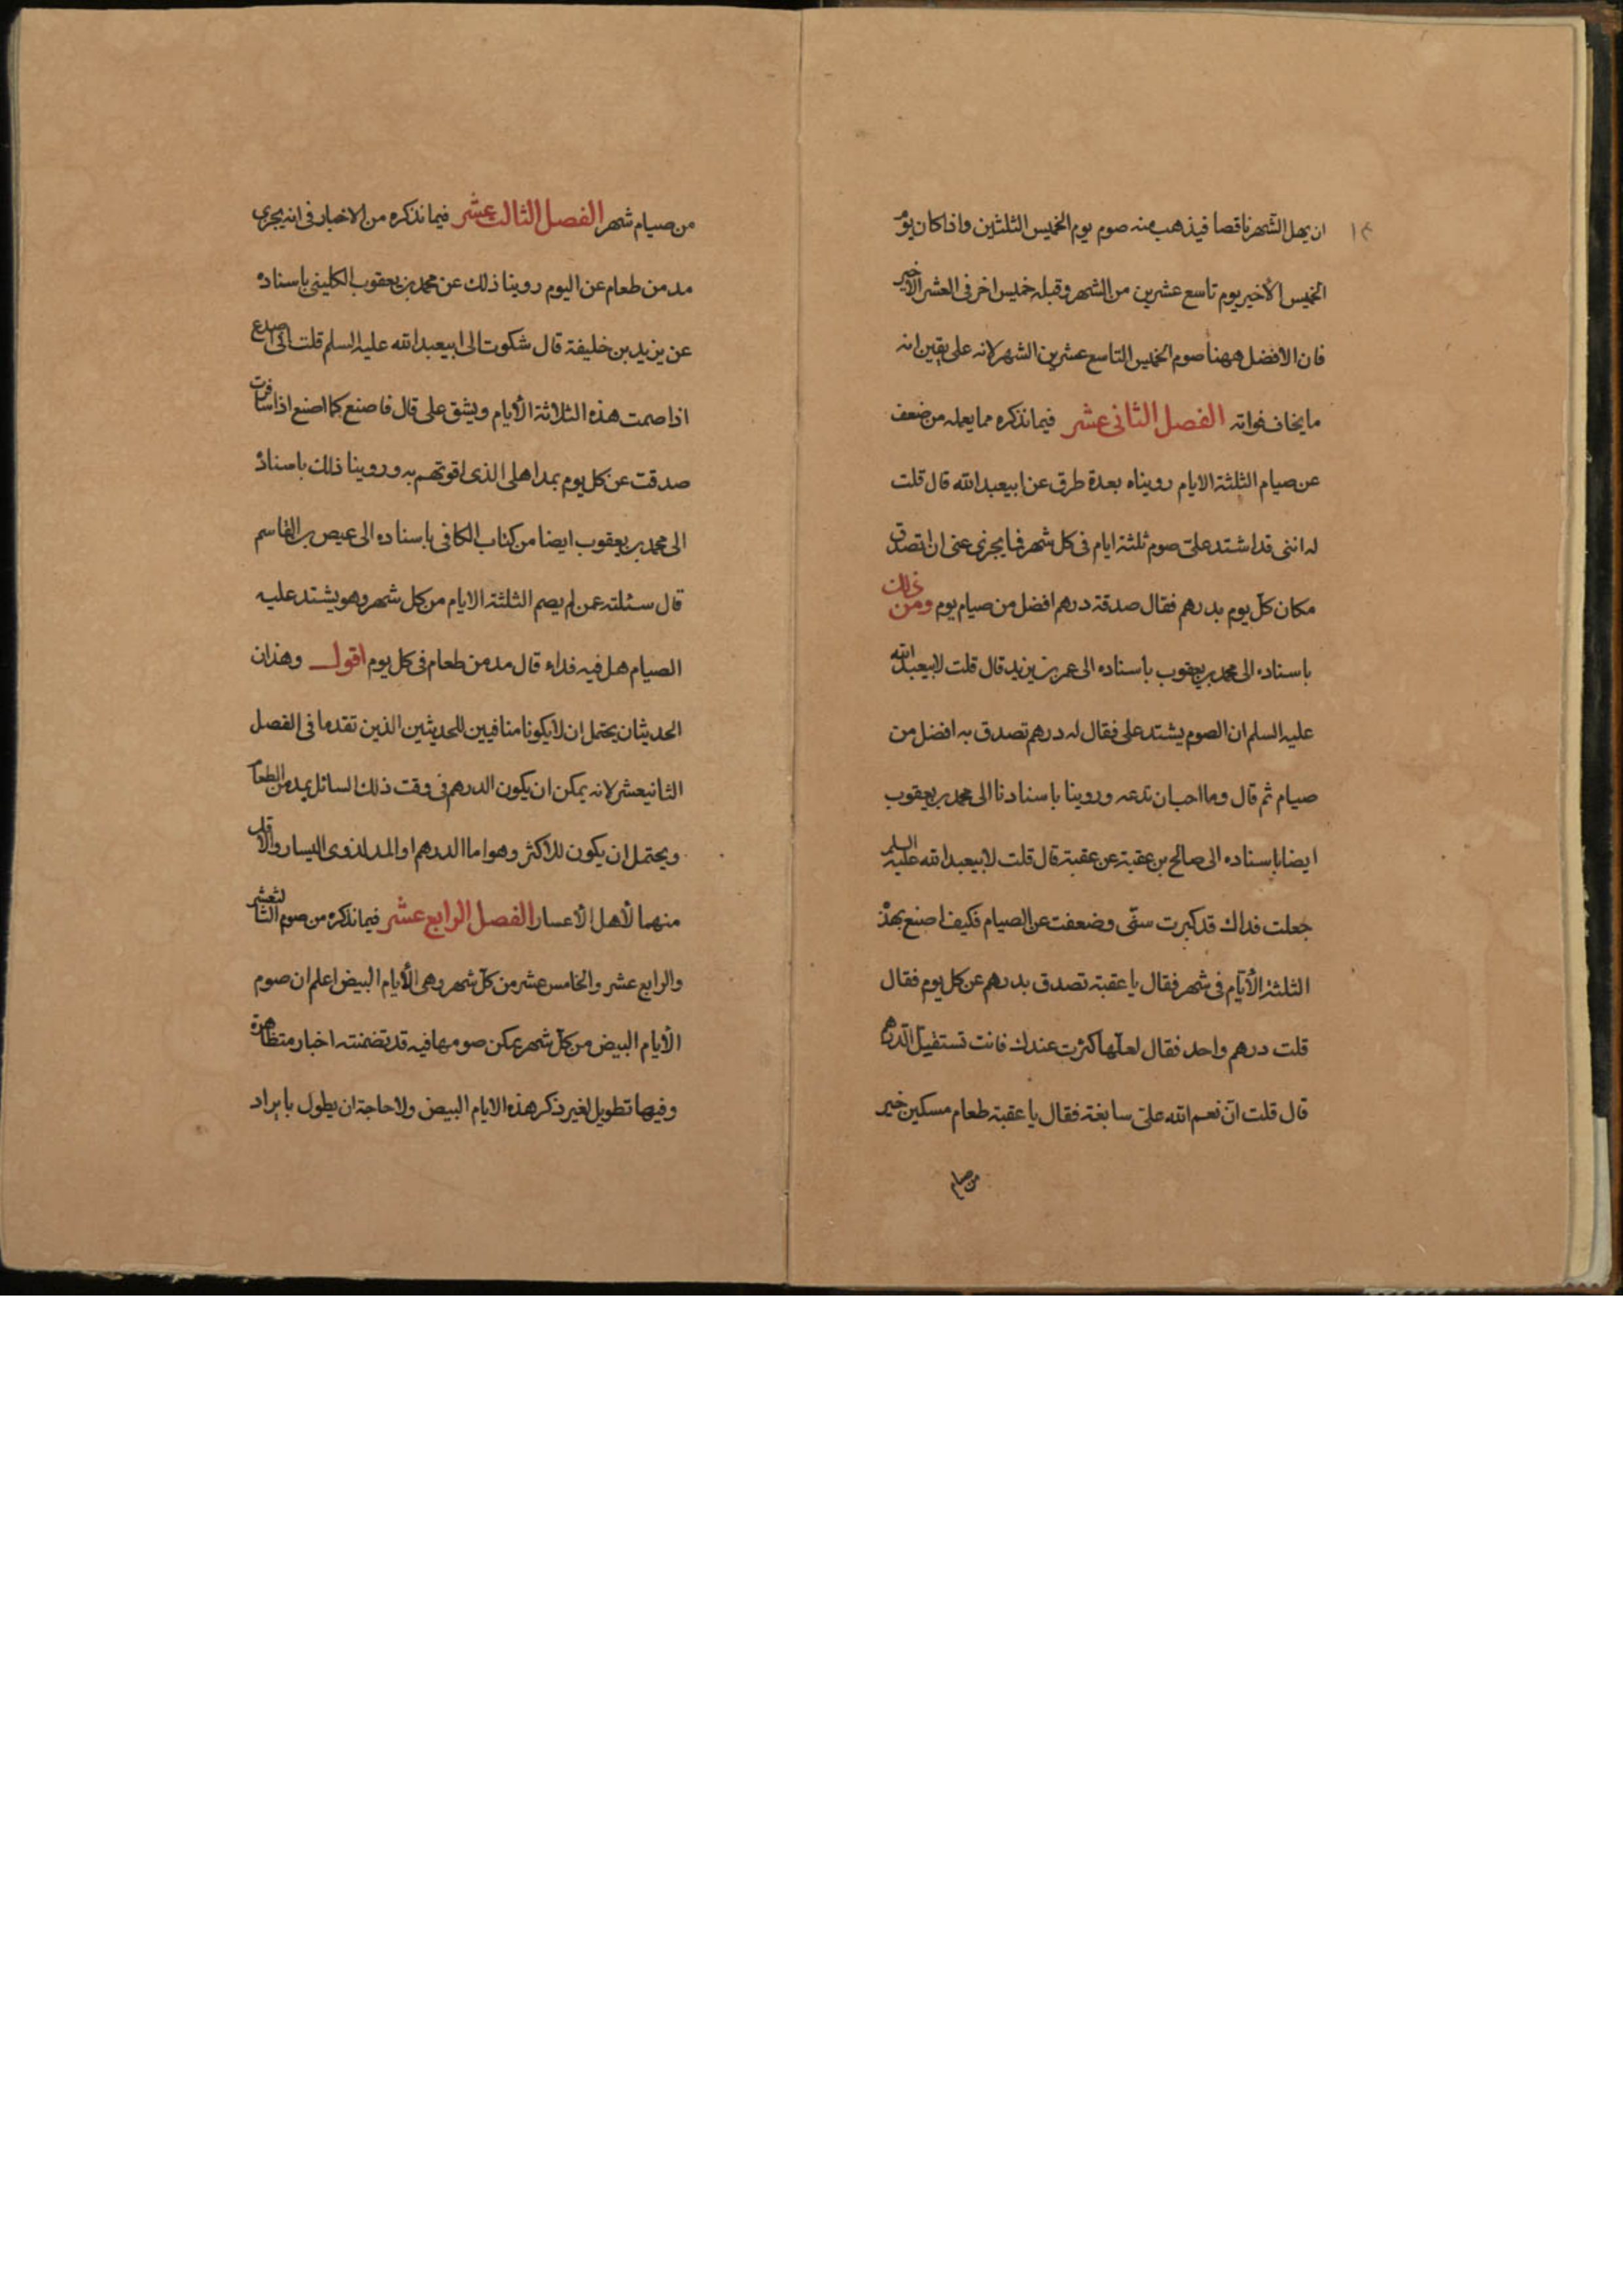 ان يهل الشهر ناقصا فيذهب منه صوم يوم الخميس الثلثين واذا كان يوم
الخميس الأخير يوم تاسع عشرين من الشهر وقبله خميس اخر في العشر الاخير
فان الأفضل ههنا صوم الخميس التاسع عشرين الشهر لانه على يقين انه
ما يخاف فواته الفصل الثاني عشر فيما نذكره مما يعمله من ضعف
عن صيام الثلثة الايام رويناه بعدة طرق عن ابيعبد الله قال قلت
له انني قد اشتد على صوم ثلثة ايام في كل شهر فما يجزى عنى ان اتصدق
مكان كل يوم بدرهم فقال صدقة درهم افضل من صيام يوم ومن ذلك
باسناده الى محمد بن يعقوب باسناده الى عمر بن يزيد قال قلت لابيعبد الله
عليه السلم ان الصوم يشتد على فقال له درهم تصدق به افضل من
صيام ثم قال وما احب ان تدعه وروينا باسنادنا الى محمد بن يعقوب
ايضا باسناده الى صالح بن عقبة عن عقبة قال قلت لابيعبد الله عليه السلم
جعلت فداك قد كبرت سنى وضعفت عن الصيام فكيف اصنع بهذه
الثلثة الأيام في شهر فقال يا عقبة تصدق بدرهم عن كل يوم فقال
قلت درهم واحد فقال لعلها كثرت عندك فانت تستقيل الدرهم
قال قلت ان نعم الله على سابغة فقال يا عقبة طعام مسكين خير
من صيام
من صيام شهر الفصل الثالث عشر فيما نذكره من الاخبار في انه يجزى
مد من طعام عن اليوم روينا ذلك عن محمد بن يعقوب الكليني باسناده
عن يزيد بن خليفة قال شكوت الى ابيعبد الله عليه السلم قلت انى اصدع
اذا صمت هذه الثلاثة الأيام ويشق على قال فاصنع كما اصنع اذا سافرت
صدقت عن كل يوم بمد اهلى الذى اقوتهم به وروينا ذلك باسناد
الى محمد بن يعقوب ايضا من كتاب الكافى باسناده الى عيص بن القاسم
قال سئلته عمن لم يصم الثلثة الايام من كل شهر وهو يشتد عليه
الصيام هل فيه فداء قال مد من طعام في كل يوم اقول وهذان
الحديثان يحتمل ان لا يكونا منافيين للحديثين الذين تقدما في الفصل
الثانيعشر لانه يمكن ان يكون الدرهم في وقت ذلك السائل بمد من الطعام
ويحتمل ان يكون للاكثر وهو اما الدرهم او المد لذوى اليسار والأقل
منهما لأهل الأعسار الفصل الرابع عشر فيما نذكره من صوم الثالثعشر
والرابع عشر والخامس عشر من كل شهر وهى الأيام البيض اعلم ان صوم
الأيام البيض من كل شهر يمكن صومها فيه قد تضمنته اخبار متظاهرة
وفيها تطويل لغير ذكر هذه الايام البيض ولا حاجة ان يطول بايراد